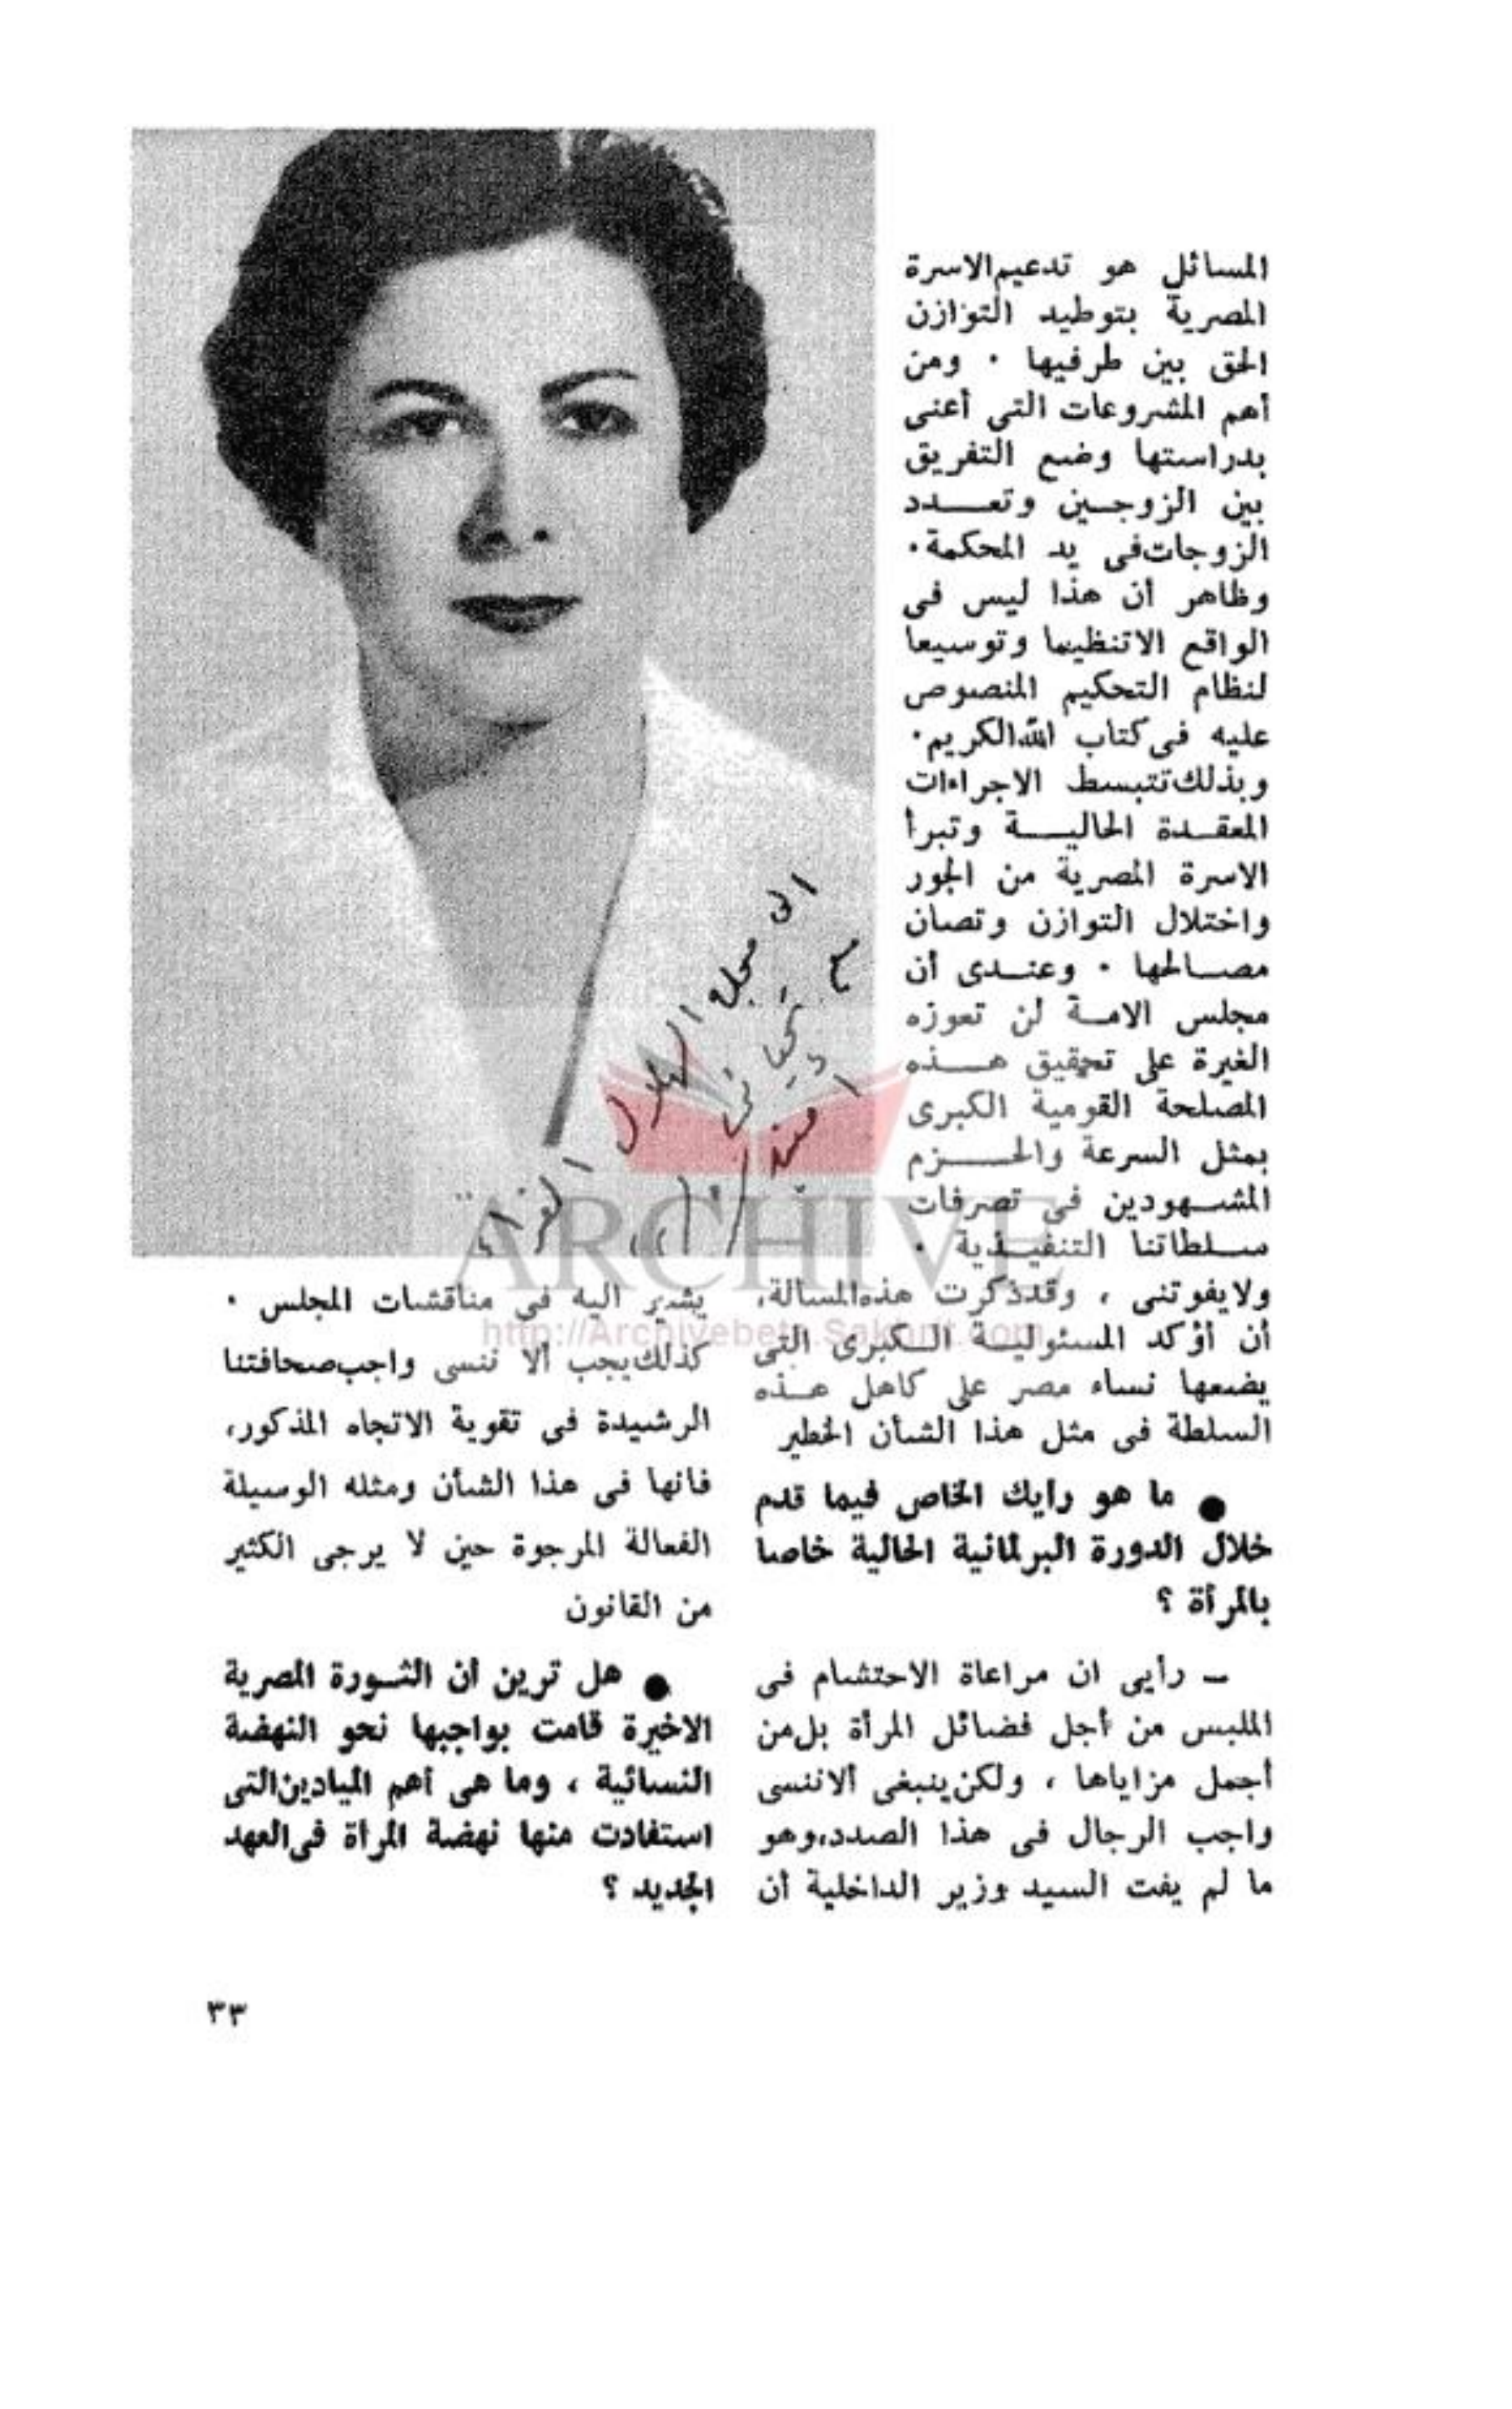 المسائل هو تدعيم الاسرة
المصرية بتوطيد التوازن
الحق بين طرفيها · ومن
أهم المشروعات التى أعنى
بدراستها وضع التفريق
بين الزوجــين وتعــــدد
الزوجات فى يد المحكمة·
وظاهر أن هذا ليس فى
الواقع الاتنظيما وتوسيعا
لنظام التحكيم المنصوص
عليه فى كتاب الله الكريم·
وبذلك تتبسط الاجراءات
المعقــدة الحاليــــة وتبرأ
الاسرة المصرية من الجور
واختلال التوازن وتصان
مصــالحها · وعنــدى أن
مجلس الامــة لن تعوزه
الغيرة على تحقيق هــــذه
المصلحة القومية الكبرى
بمثل السرعة والحــــزم
المشــهودين فى تصرفات
ســلطاتنا التنفيــذية ·
ولا يفوتنى ، وقد ذكرت هذه المسألة،
أن أؤكد المسئوليــة الــكبرى التى
يضعها نساء مصر على كاهل هــذه
السلطة فى مثل هذا الشأن الخطير
● ما هو رأيك الخاص فيما قدم
خلال الدورة البرلمانية الحالية خاصا
بالمرأة ؟
– رأيى ان مراعاة الاحتشام فى
الملبس من أجل فضائل المرأة بل من
أجمل مزاياها ، ولكن ينبغى ألا ننسى
واجب الرجال فى هذا الصدد،وهو
ما لم يفت السيد وزير الداخلية أن
يشير اليه فى مناقشات المجلس ·
كذلك يجب ألا ننسى واجب صحافتنا
الرشيدة فى تقوية الاتجاه المذكور،
فانها فى هذا الشأن ومثله الوسيلة
الفعالة المرجوة حين لا يرجى الكثير
من القانون
● هل ترين أن الثــورة المصرية
الاخيرة قامت بواجبها نحو النهضة
النسائية ، وما هى أهم الميادين التى
استفادت منها نهضة المرأة فى العهد
الجديد ؟
الى مجلة الهلال الغراء
مع تحياتى
أمينة
ARCHIVE
http://Archivebeta.Sakhrit.com
٣٣